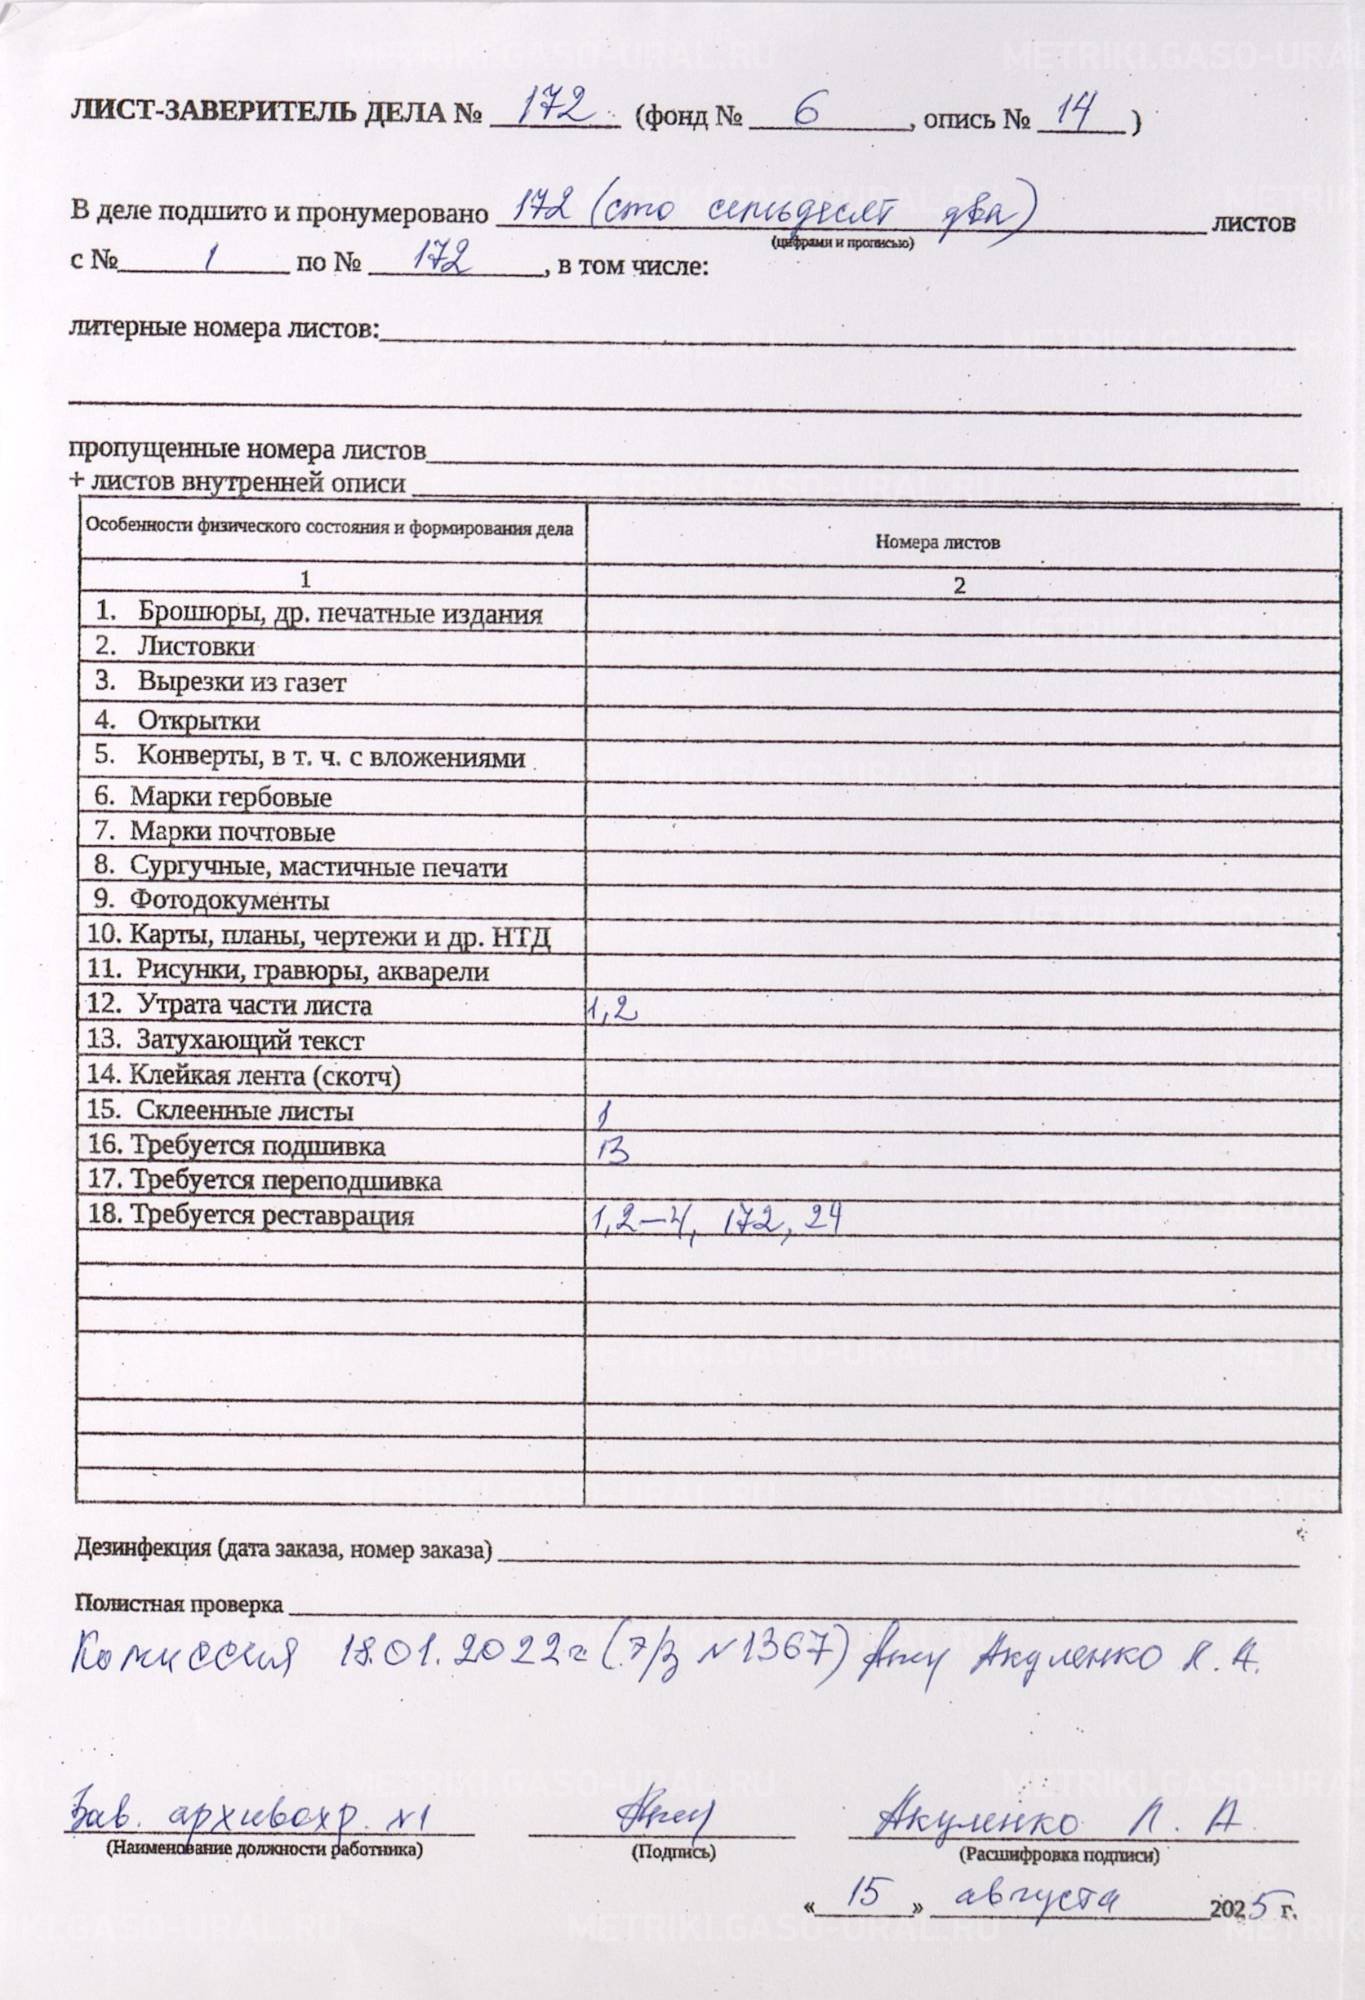 ЛИСТ-ЗАВЕРИТЕЛЬ ДЕЛА № 172 (фонд № 6, опись № 14)
В деле подшито и пронумеровано 172 (сто семьдесят два) листов
(цифрами и прописью)
с № 1 по № 172, в том числе:
литерные номера листов:
пропущенные номера листов
+ листов внутренней описи
Особенности физического состояния и формирования дела Номера листов
1 2
1. Брошюры, др. печатные издания
2. Листовки
3. Вырезки из газет
4. Открытки
5. Конверты, в т. ч. с вложениями
6. Марки гербовые
7. Марки почтовые
8. Сургучные, мастичные печати
9. Фотодокументы
10. Карты, планы, чертежи и др. НТД
11. Рисунки, гравюры, акварели
12. Утрата части листа 1,2
13. Затухающий текст
14. Клейкая лента (скотч)
15. Склеенные листы 1
16. Требуется подшивка
17. Требуется переподшивка
18. Требуется реставрация 1,2-4, 172, 24
Дезинфекция (дата заказа, номер заказа)
Полистная проверка
Комиссия 18.01.2022г (т/з №1367) Акуленко Л. А.
Зав. архивохр. №1 Акуленко Л. А.
(Наименование должности работника) (Подпись) (Расшифровка подписи)
« 15 » августа 2025 г.
METRIKI.GASO-URAL.RU